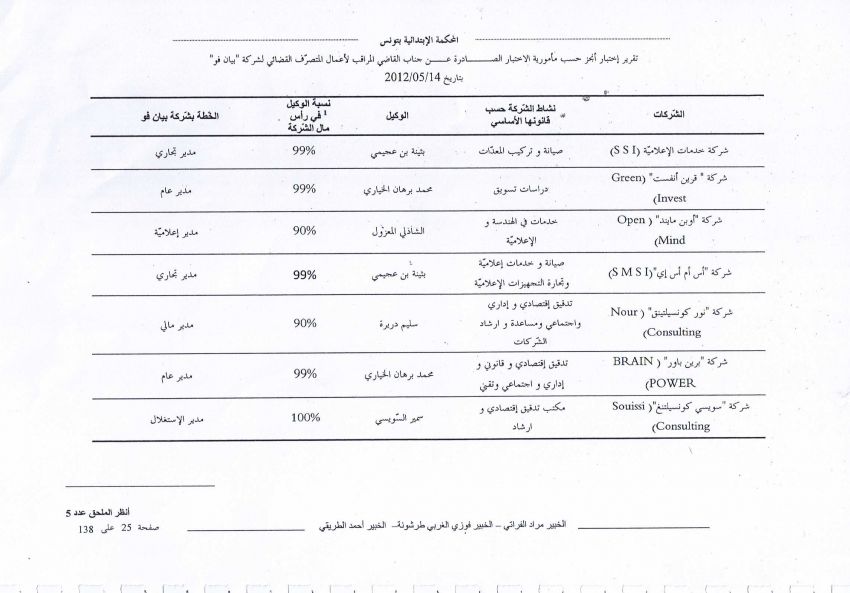 المحكمة الإبتدائية بتونس
تقرير إختبار أنجز حسب مأمورية الاختبار الصـــــــادرة عـــن جناب القاضي المراقب لأعمال المتصرّف القضائي لشركة "بيان فو"
بتاريخ 2012/05/14
الشركات نشاط الشركة حسب قانونها الأساسي الوكيل نسبة الوكيل في رأس مال الشركة 1 الخطة بشركة بيان فو
شركة خدمات الإعلاميّة (S S I) صيانة و تركيب المعدّات بثينة بن عجيمي 99% مدير تجاري
شركة "قرين أنفست" (Green
Invest) دراسات تسويق محمد برهان الخياري 99% مدير عام
شركة "أوبن مايند" (Open
Mind) خدمات في الهندسة و
الإعلاميّة الشاذلي المعزول 90% مدير إعلاميّة
شركة "أس أم أس إي"(S M S I) صيانة و خدمات إعلاميّة
وتجارة التجهيزات الإعلاميّة بثينة بن عجيمي 99% مدير تجاري
شركة "نور كونسيلتينق" (Nour
Consulting) تدقيق إقتصادي و إداري
واجتماعي ومساعدة و ارشاد
الشركات سليم دريرة 90% مدير مالي
شركة "برين باور" (BRAIN
POWER) تدقيق إقتصادي و قانوني و
إداري و اجتماعي وتقني محمد برهان الخياري 99% مدير عام
شركة "سويسي كونسيلتنغ"(Souissi
Consulting) مكتب تدقيق إقتصادي و
ارشاد سمير السّويسي 100% مدير الإستغلال
أنظر الملحق عدد 5
الخبير مراد الفراتي – الخبير فوزي الغربي طرشونة– الخبير أحمد الطريقي
صفحة 25 على 138